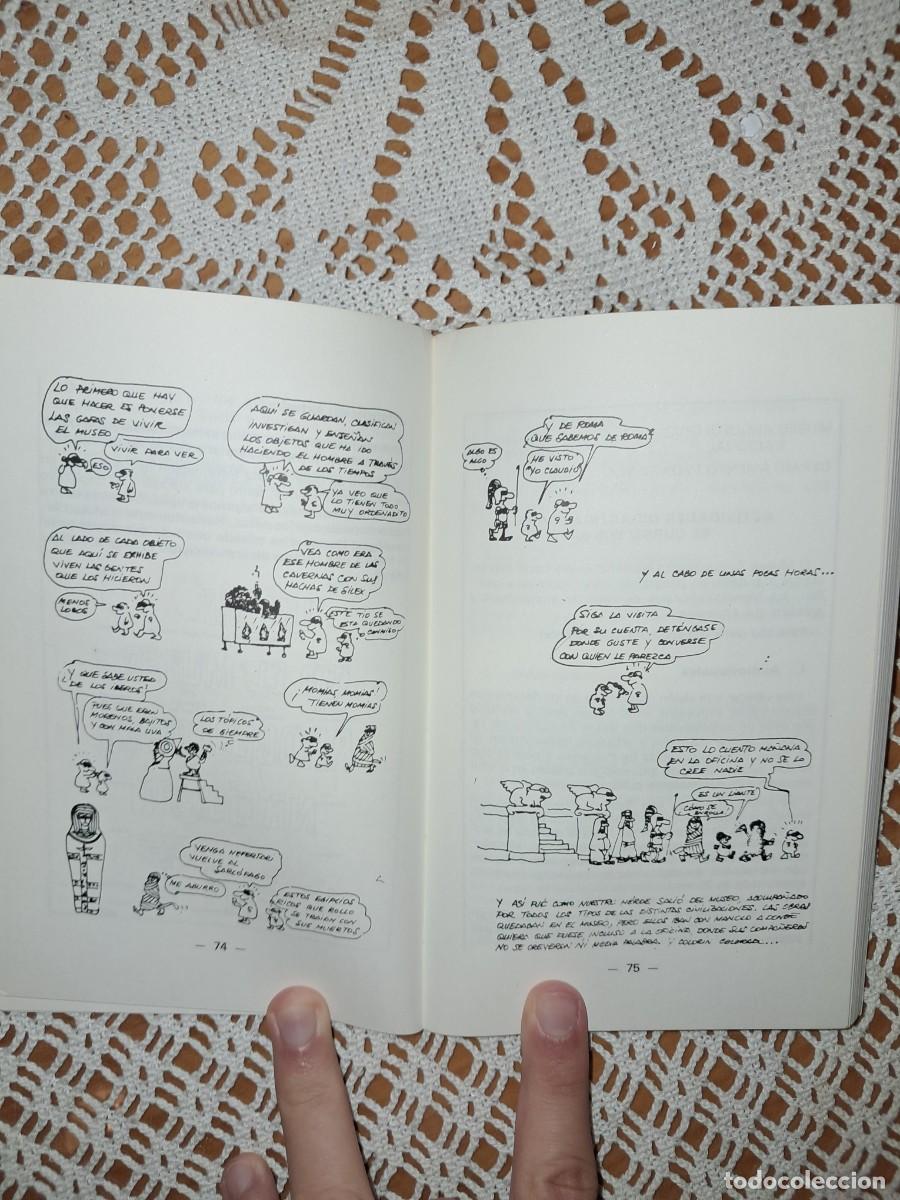 LO PRIMERO QUE HAY
QUE HACER ES PONERSE
LAS GAFAS DE VIVIR
EL MUSEO
ESO
VIVIR PARA VER
AQUÍ SE GUARDAN, CLASIFICAN
INVESTIGAN Y ENSEÑAN
LOS OBJETOS QUE HA IDO
HACIENDO EL HOMBRE A TRAVÉS
DE LOS TIEMPOS
YA VEO QUE
LO TIENEN TODO
MUY ORDENADITO
AL LADO DE CADA OBJETO
QUE AQUÍ SE EXHIBE
VIVEN LAS GENTES
QUE LOS HICIERON
MENOS
LOBOS
VEA COMO ERA
ESE HOMBRE DE LAS
CAVERNAS CON SUS
HACHAS DE SILEX
ESTE TIO SE
ESTA QUEDANDO
CONMIGO
¿Y QUE SABE USTED
DE LOS IBEROS?
PUES QUE ERAN
MORENOS, BAJITOS
Y CON MALA UVA
LOS TOPICOS
DE SIEMPRE
¡MOMIAS MOMIAS!
TIENEN MOMIAS
VENGA NEFERTARI
VUELVE AL
SARCÓFAGO
ME ABURRO
ESTOS EGIPCIOS
RICOS QUE ROLLO
SE TRAIEN CON
SUS MUERTOS
— 74 —
¿Y DE ROMA
QUE SABEMOS DE ROMA?
HE VISTO
"YO CLAUDIO"
ALGO ES
ALGO
Y AL CABO DE UNAS POCAS HORAS...
SIGA LA VISITA
POR SU CUENTA, DETÉNGASE
DONDE GUSTE Y CONVERSE
CON QUIEN LE PAREZCA
ESTO LO CUENTO MAÑANA
EN LA OFICINA Y NO SE LO
CREE NADIE
ES UN LIANTE
COMO SE
ENROLLA
Y ASÍ FUÉ COMO NUESTRO HÉROE SALIÓ DEL MUSEO, ACOMPAÑADO
POR TODOS LOS TIPOS DE LAS DISTINTAS CIVILIZACIONES. LAS OBRAS
QUEDABAN EN EL MUSEO, PERO ELLOS IBAN CON MANOLO A DONDE
QUIERA QUE FUESE, INCLUSO A LA OFICINA, DONDE SUS COMPAÑEROS
NO SE CREYERON NI MEDIA PALABRA. Y COLORIN COLORADO...
— 75 —
todocoleccion